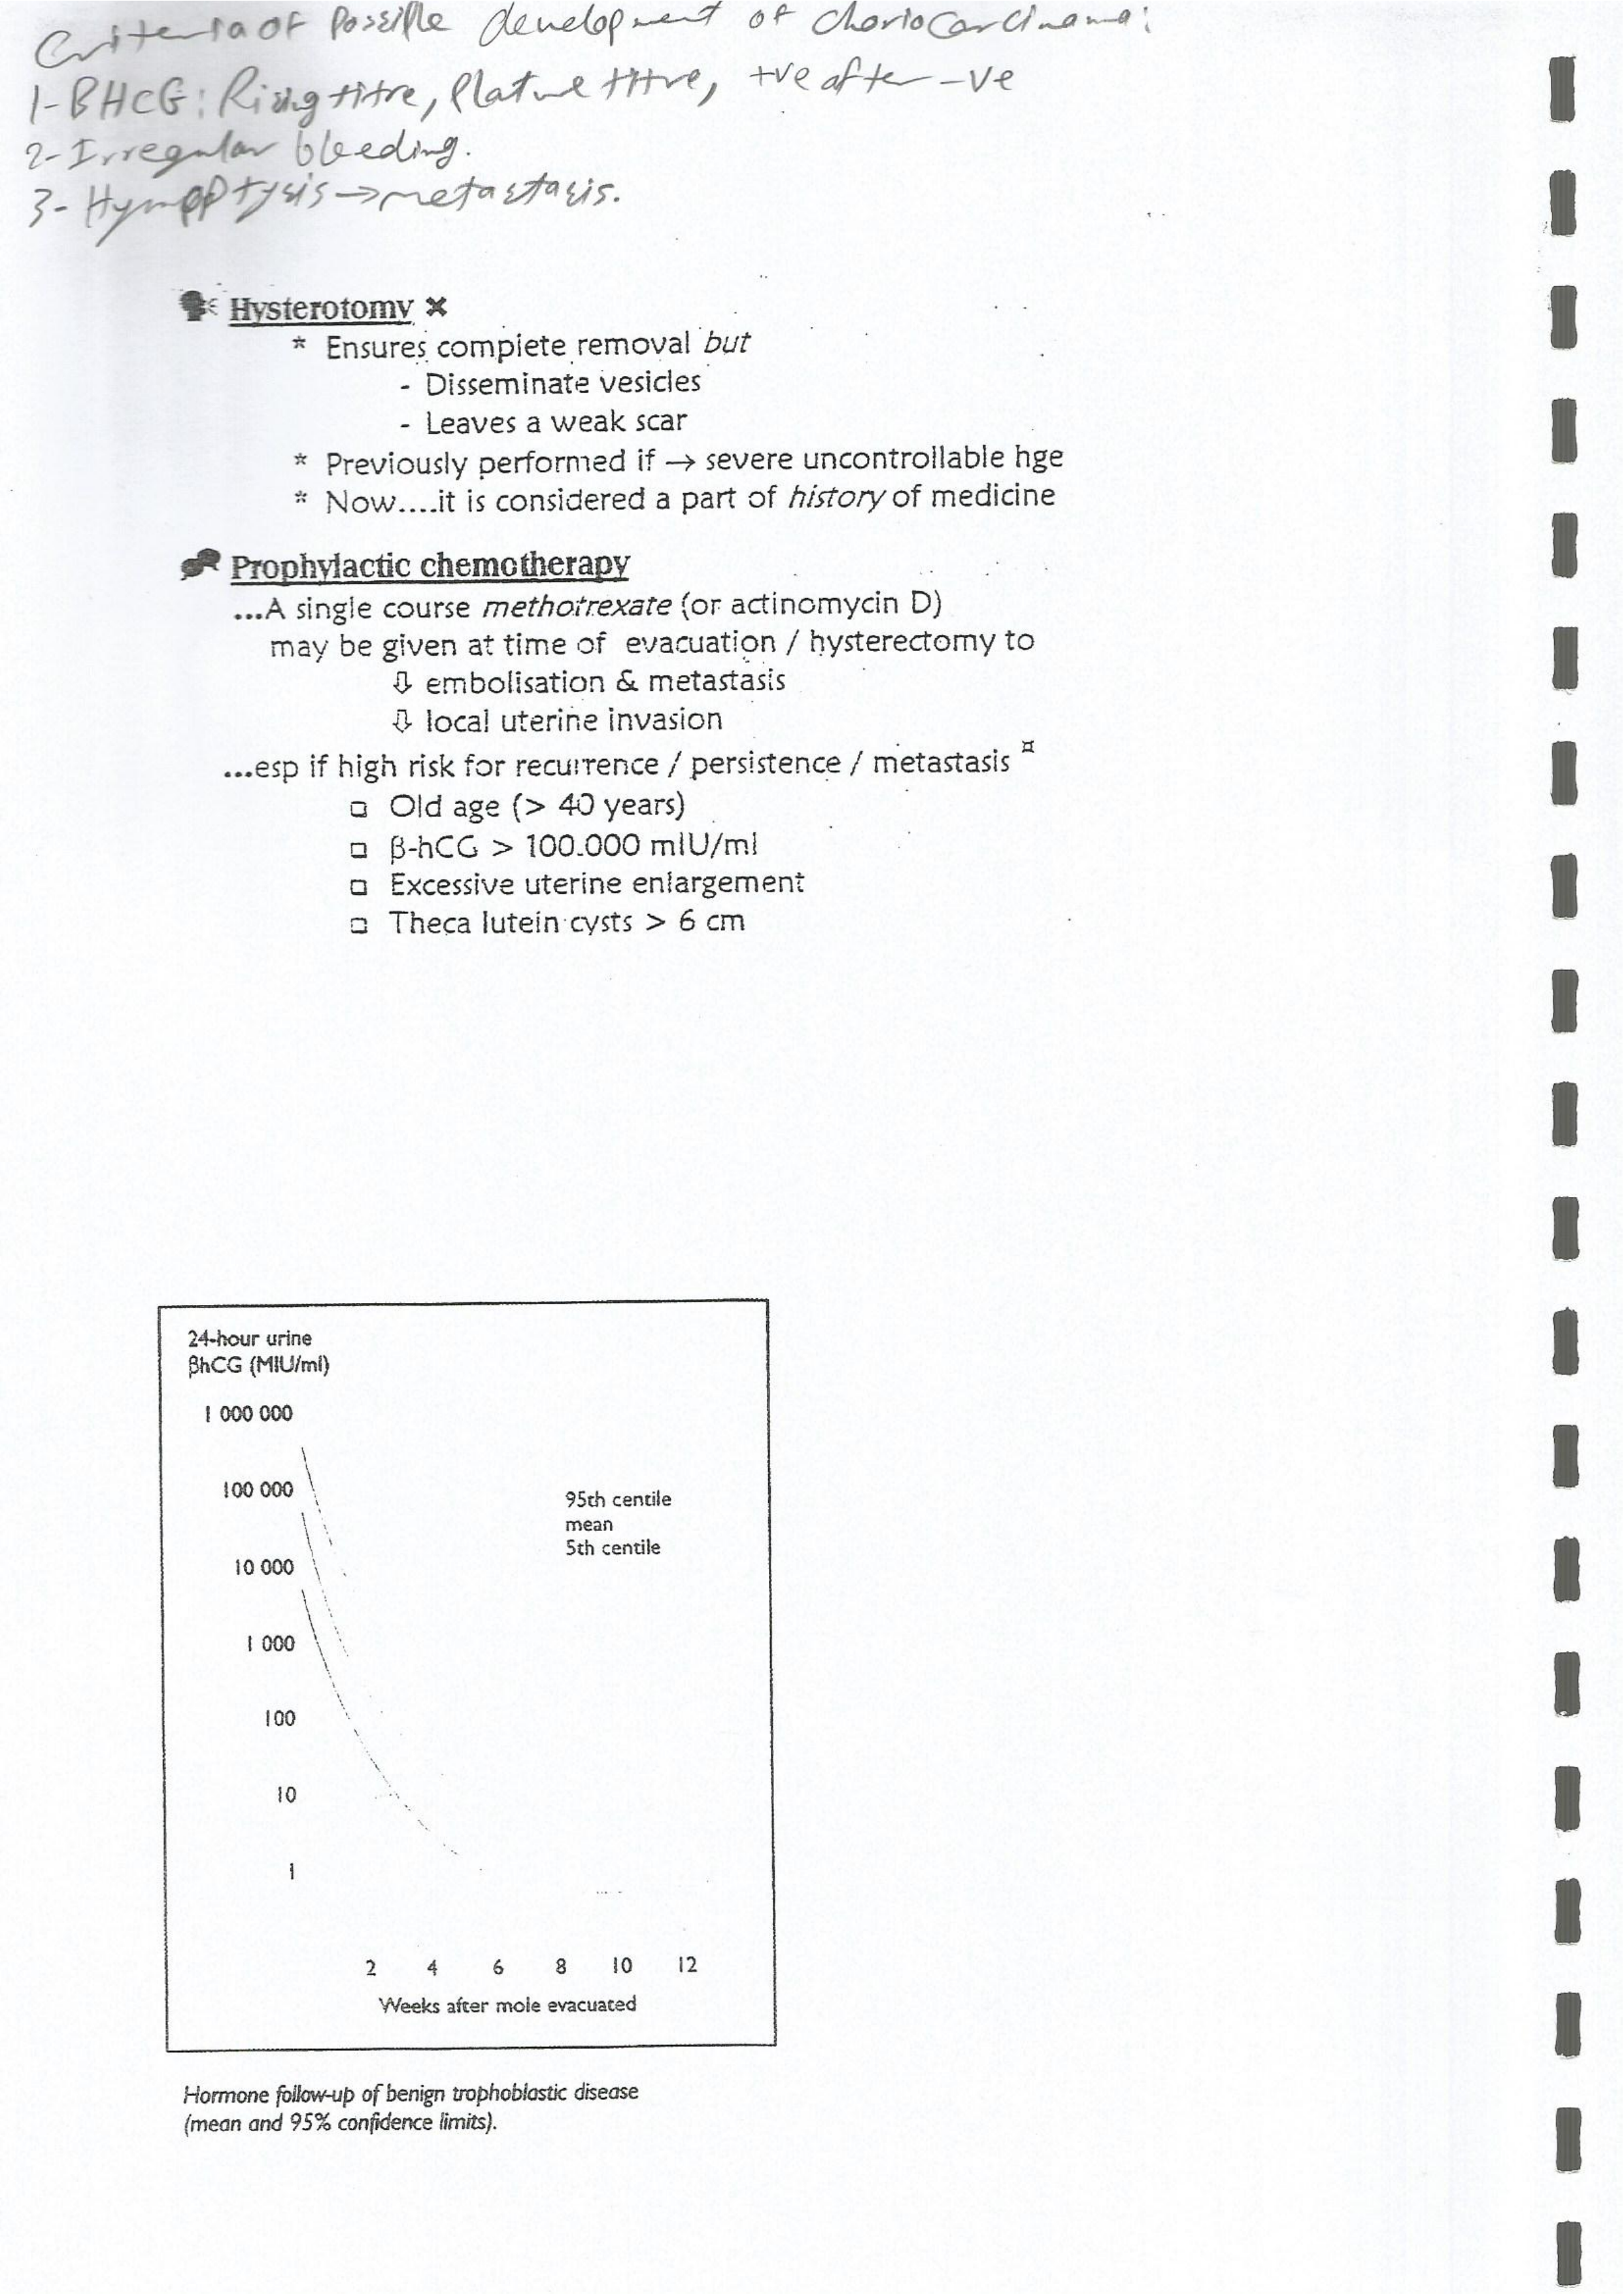 Criteria of Possible development of choriocarcinoma:
1- BHCG: Rising titre, Platue titre, +ve after -ve
2- Irregular bleeding.
3- Hymoptysis → metastasis.
Hysterotomy ✖
* Ensures complete removal but
- Disseminate vesicles
- Leaves a weak scar
* Previously performed if → severe uncontrollable hge
* Now....it is considered a part of history of medicine
Prophylactic chemotherapy
...A single course methotrexate (or actinomycin D)
may be given at time of evacuation / hysterectomy to
⇩ embolisation & metastasis
⇩ local uterine invasion
...esp if high risk for recurrence / persistence / metastasis ¤
□ Old age (> 40 years)
□ β-hCG > 100.000 mIU/ml
□ Excessive uterine enlargement
□ Theca lutein cysts > 6 cm
24-hour urine
βhCG (MIU/ml)
1 000 000
100 000
95th centile
mean
5th centile
10 000
1 000
100
10
1
2 4 6 8 10 12
Weeks after mole evacuated
Hormone follow-up of benign trophoblastic disease
(mean and 95% confidence limits).